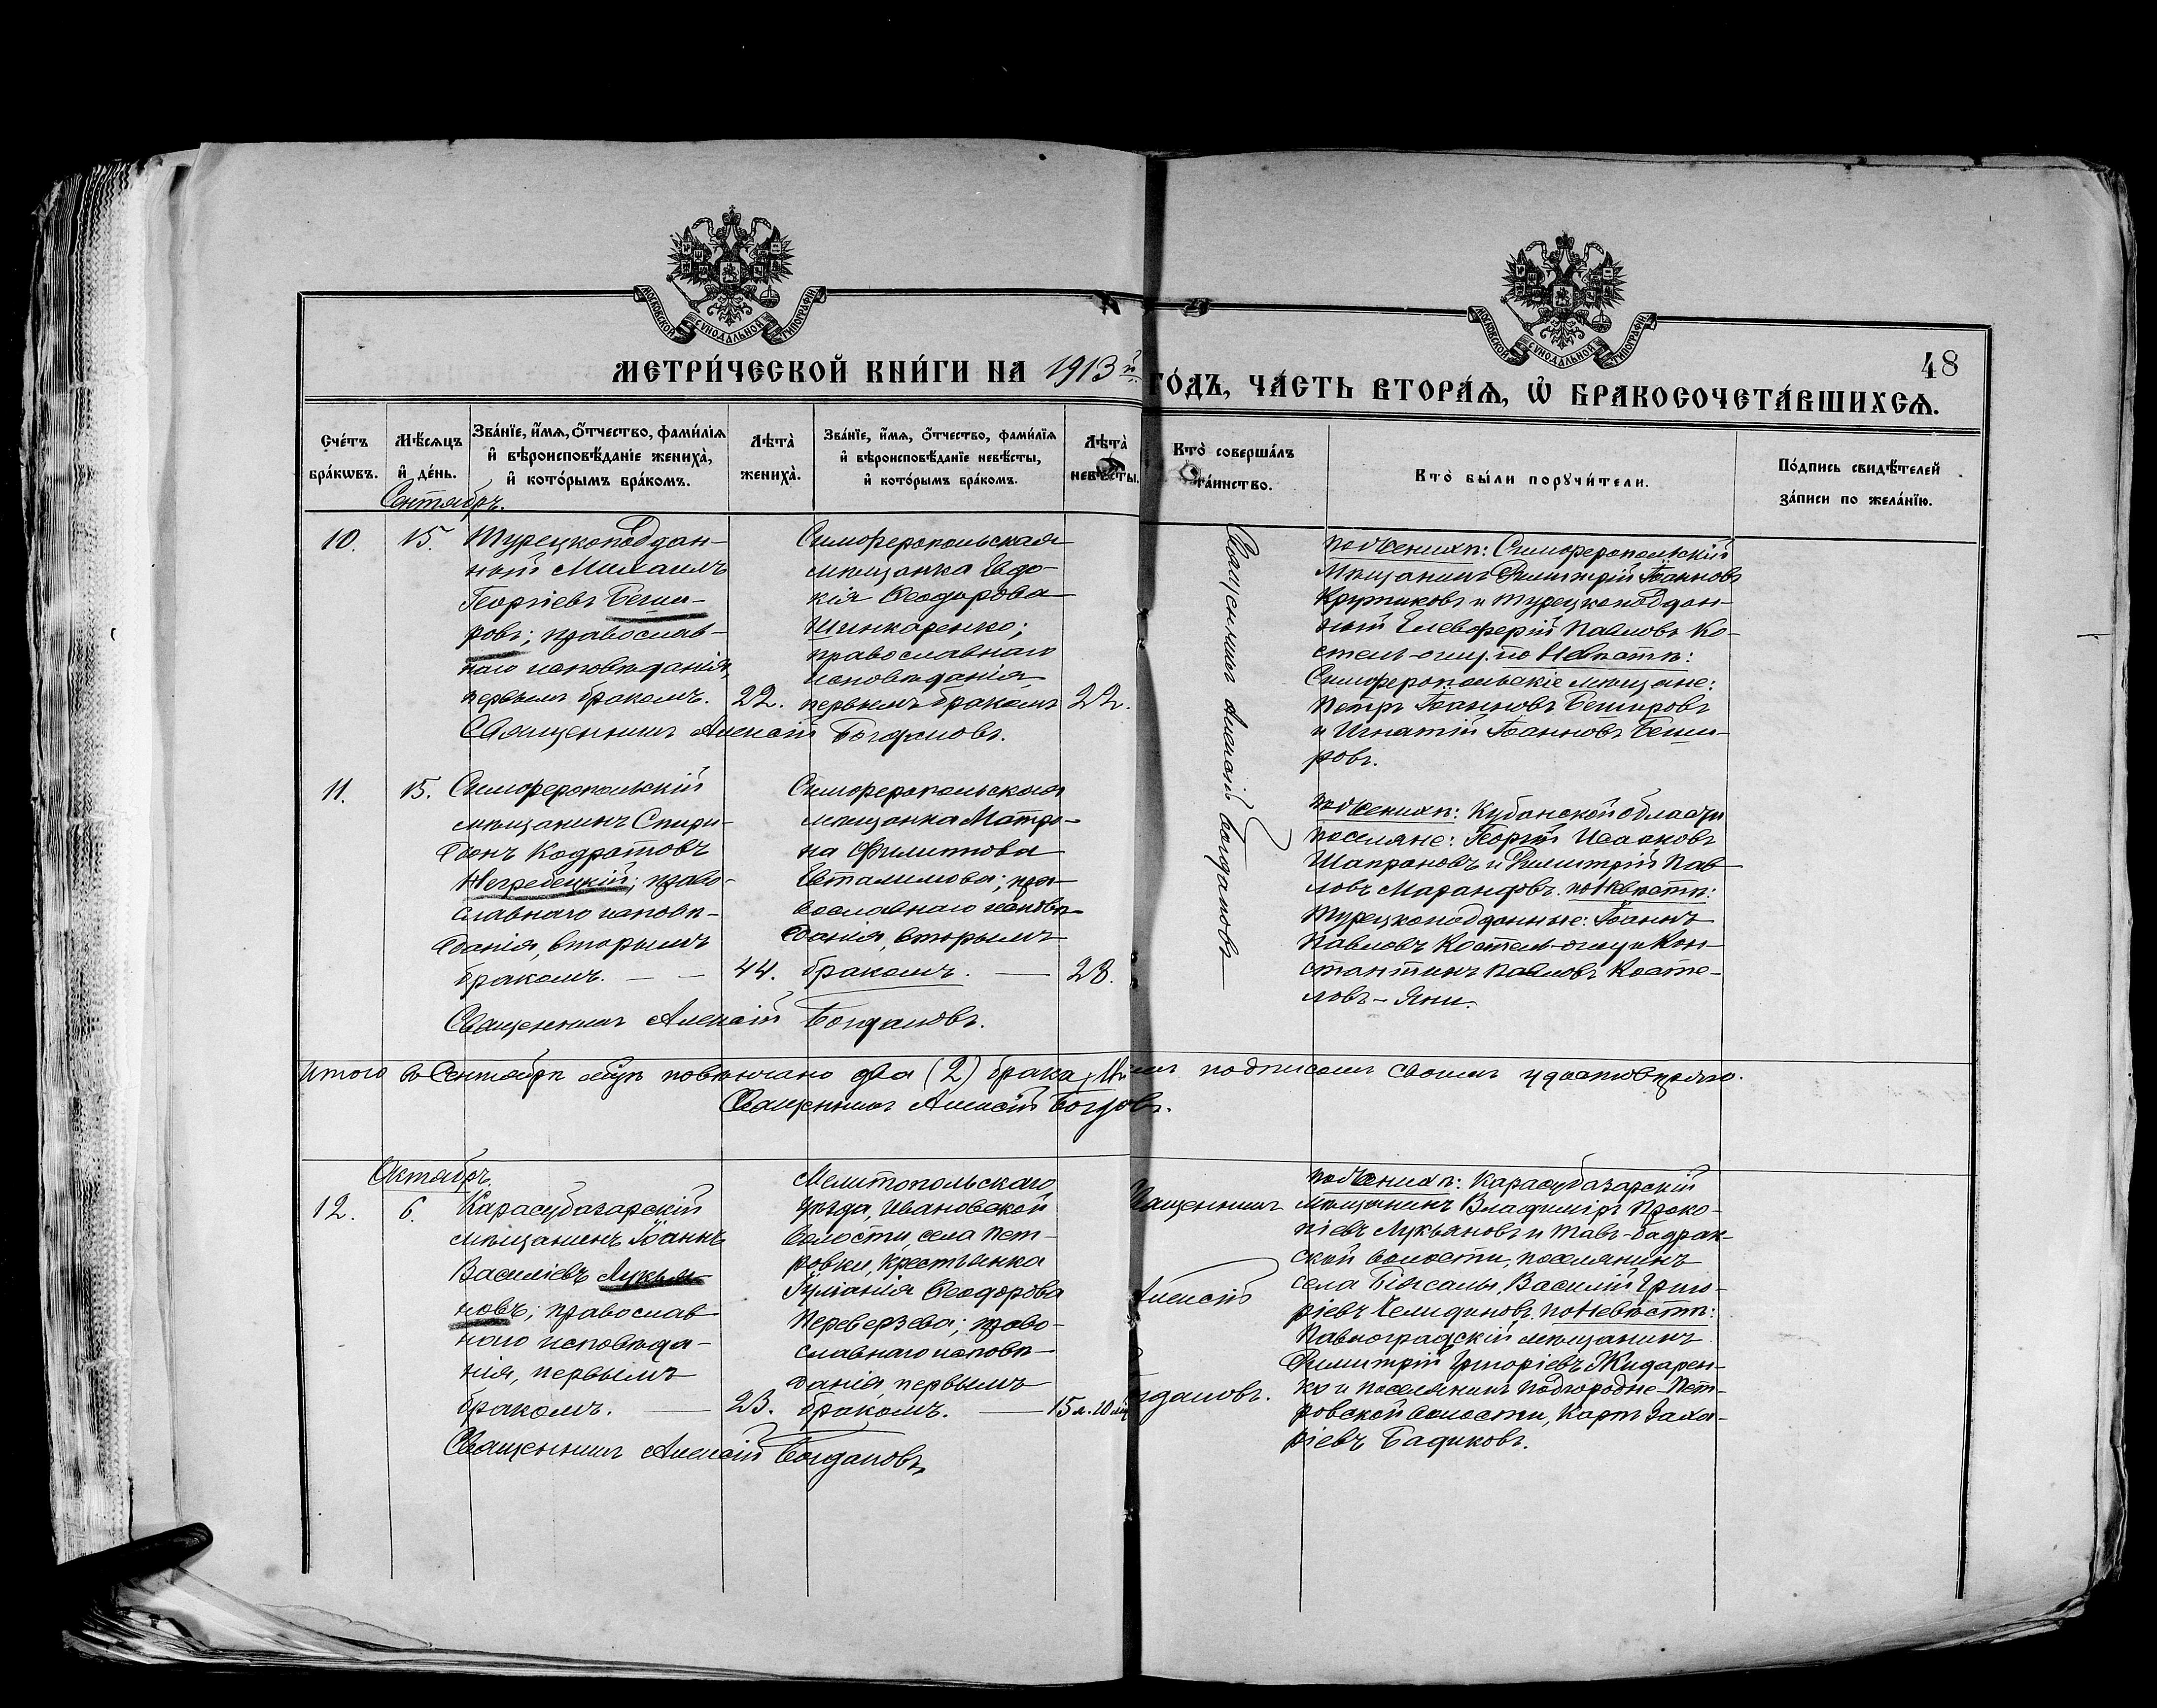 МОСКОВСКОЙ СѴНОДАЛЬНОЙ ТИПОГРАФІИ
МОСКОВСКОЙ СѴНОДАЛЬНОЙ ТИПОГРАФІИ
48
МЕТРИ́ЧЕСКОЙ КНИ́ГИ НА 1913й ГО́ДЪ, ЧА́СТЬ ВТОРА́Ѧ, Ѡ҆ БРАКОСОЧЕТА́ВШИХСѦ.
Сче́тъ
бра́кѡвъ.
Мѣ́сяцъ
и҆ де́нь.
Зва́нїе, и҆́мя, ѻ҆́тчество, фами́лїя
и҆ вѣроисповѣ́данїе жениха̀,
и҆ кото́рымъ бра́комъ.
Лѣта̀
жениха̀.
Зва́нїе, и҆́мя, ѻ҆́тчество, фами́лїя
и҆ вѣроисповѣ́данїе невѣ́сты,
и҆ кото́рымъ бра́комъ.
Лѣта̀
невѣ́сты.
Кто̀ соверша́лъ
та́инство.
Кто̀ бы́ли порꙋчи́тели.
По́дпись свидѣ́телей
за́писи по жела́нїю.
Сентябрь.
10.
15.
Турецкоподдан-
ный Михаилъ
Георгіевъ Беши-
ровъ; православ-
наго исповѣданія,
первымъ бракомъ.
22.
Симферопольская
мѣщанка Евдо-
кія Ѳеодорова
Шинкаренко;
православнаго
исповѣданія
первымъ бракомъ
22.
Священникъ Алексій Богдановъ.
Священникъ Алексій Богдановъ
по Женихѣ: Симферопольскій
мѣщанинъ Димитрій Іоанновъ
Крутиковъ и турецкоподдан-
ный Елевферій Павловъ Ко-
стель-оглу. по Невѣстѣ:
Симферопольскіе мѣщане:
Петръ Іоанновъ Бешировъ
и Игнатій Іоанновъ Беши-
ровъ.
11.
15.
Симферопольскій
мѣщанинъ Спири-
донъ Кодратовъ
Негребецкій; право-
славнаго исповѣ-
данія, вторымъ
бракомъ.
44.
Симферопольская
мѣщанка Матро-
на Филиппова
Сталимова; пра-
вославнаго исповѣ-
данія, вторымъ
бракомъ.
28.
Священникъ Алексій Богдановъ.
по Женихѣ: Кубанской области
поселяне: Георгій Исааковъ
Шапрановъ и Димитрій Пав-
ловъ Марандовъ. по Невѣстѣ:
Турецкоподданные: Іоаннъ
Павловъ Костель-оглу и Кон-
стантинъ Павловъ Косте-
ловъ-Яни.
Итого въ Сентябрѣ мѣсяцѣ повѣнчано два (2) брака, подписомъ своимъ удостовѣряю.
Священникъ Алексій Богдановъ.
Октябрь.
12.
6.
Карасубазарскій
мѣщанинъ Іоаннъ
Василіевъ Лукья-
новъ; православ-
наго исповѣда-
нія, первымъ
бракомъ.
23.
Мелитопольскаго
уѣзда, Ивановской
волости, села Пет-
ровки, крестьянка
Іуліанія Ѳеодорова
Переверзева; право-
славнаго исповѣ-
данія, первымъ
бракомъ.
15 л. 10 мѣс
Священникъ Алексій Богдановъ.
Священникъ
Алексій
Богдановъ.
по Женихѣ: Карасубазарскій
мѣщанинъ Владиміръ Проко-
піевъ Лукьяновъ и Тавъ-бадрак-
ской волости, поселянинъ
села Біясалы, Василій Григо-
ріевъ Челидиновъ. по Невѣстѣ:
Павлоградскій мѣщанинъ
Димитрій Григоріевъ Жидарен-
ко и поселянинъ Подгородне-Пет-
ровской волости, Карпъ Заха-
ріевъ Бадиковъ.